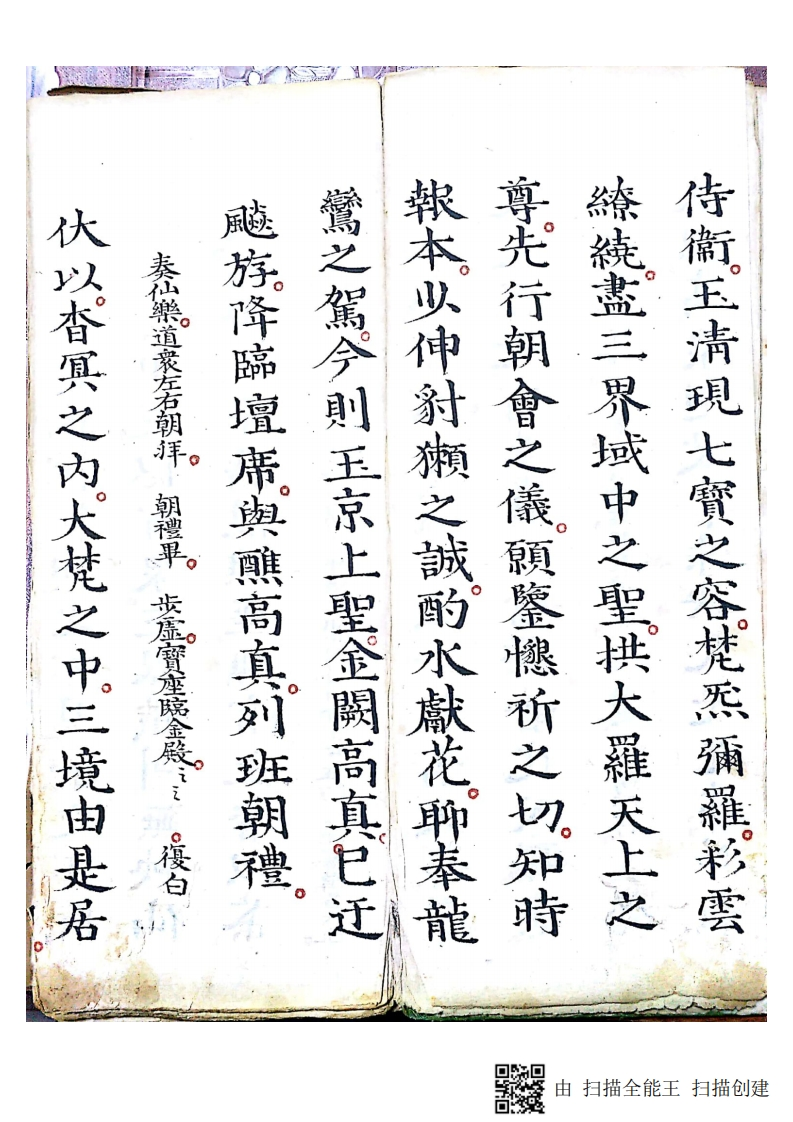 侍衛玉清現七寶之容梵炁彌羅彩雲
繚繞盡三界域中之聖拱大羅天上之
尊先行朝會之儀願鑒懇祈之切知時
報本以伸豺獺之誠酌水獻花聊奉龍
鸞之駕今則玉京上聖金闕高真已迂
飈斿降臨壇席與醮高真列班朝禮
奏仙樂道衆左右朝拜 朝禮畢 步虛寶座臨金殿〻〻 復白
伏以杳冥之内大梵之中三境由是居
由 扫描全能王 扫描创建